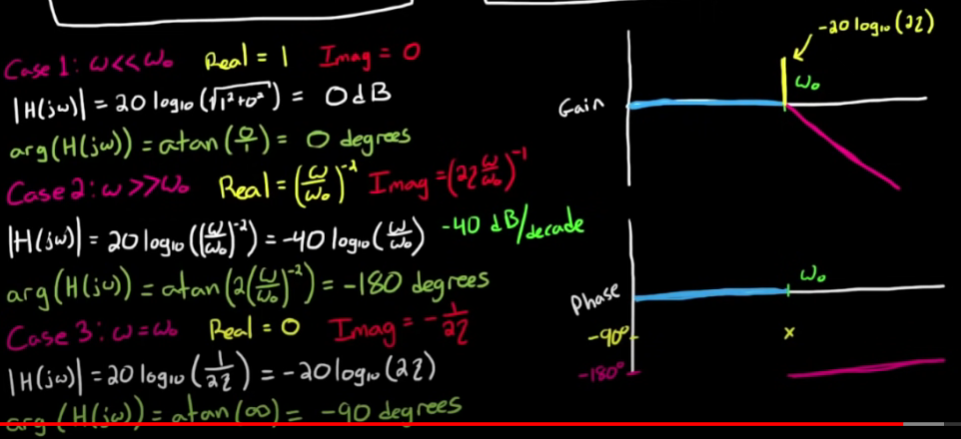 Case 1: ω<<ω₀ Real = 1 Imag = 0
|H(jω)| = 20 log₁₀ (√1²+0²) = 0dB
arg(H(jω)) = atan(0/1) = 0 degrees
Case 2: ω>>ω₀ Real = (ω/ω₀)⁻² Imag = (2ζ ω/ω₀)⁻¹
|H(jω)| = 20 log₁₀ ((ω/ω₀)⁻²) = -40 log₁₀ (ω/ω₀) -40 dB/decade
arg(H(jω)) = atan(2(ω/ω₀)⁻²) = -180 degrees
Case 3: ω=ω₀ Real = 0 Imag = -1/2ζ
|H(jω)| = 20 log₁₀ (1/2ζ) = -20 log₁₀ (2ζ)
arg(H(jω)) = atan(∞) = -90 degrees
-20 log₁₀ (2ζ)
ω₀
Gain
ω₀
Phase
-90°
x
-180°